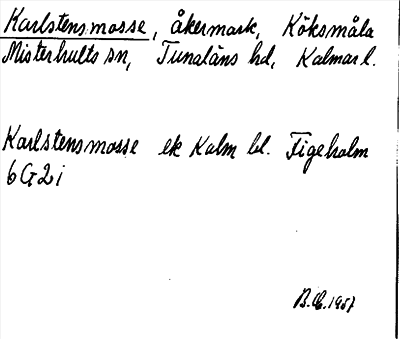 Karlstensmosse, åkermark, Köksmåla
Misterhults sn, Tunaläns hd, Kalmar l.
Karlstensmosse ek Kalm bl. Figeholm
6G2i
1957